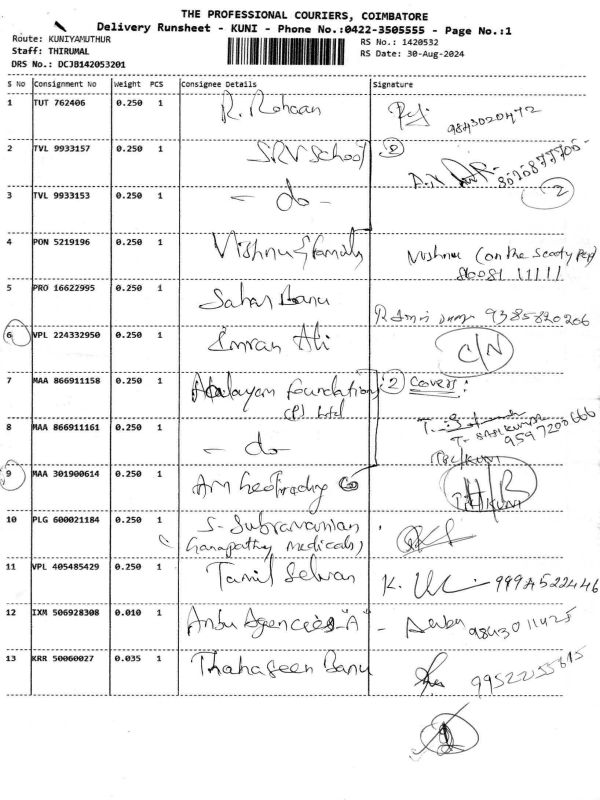 THE PROFESSIONAL COURIERS, COIMBATORE
Delivery Runsheet - KUNI - Phone No.:0422-3505555 - Page No.:1
Route: KUNIYAMUTHUR
RS No.: 1420532
Staff: THIRUMAL
RS Date: 30-Aug-2024
DRS No.: DCJB142053201
S No Consignment No Weight PCS Consignee Details Signature
1 TUT 762406 0.250 1 R. Rohaan
9843020472
2 TVL 9933157 0.250 1 SRV School
3 TVL 9933153 0.250 1 - do - 2
4 PON 5219196 0.250 1 Vishnu & family Vishnu (on the
86081 11111
5 PRO 16622995 0.250 1 Sahar Banu 9385820206
6 VPL 224332950 0.250 1 Imran Ali C/N
7 MAA 866911158 0.250 1 Foundation :2 Covers:
(P) Ltd
8 MAA 866911161 0.250 1 - do - 9597200666
9 MAA 301900614 0.250 1
10 PLG 600021184 0.250 1 S. Subramanian
(Ganapathy Medicals)
11 VPL 405485429 0.250 1 Tamil Selvan K.
12 IXM 506928308 0.010 1 Anbu Agencies "A" - Anbu 9843011425
13 KRR 50060027 0.035 1 Thahaseen Banu